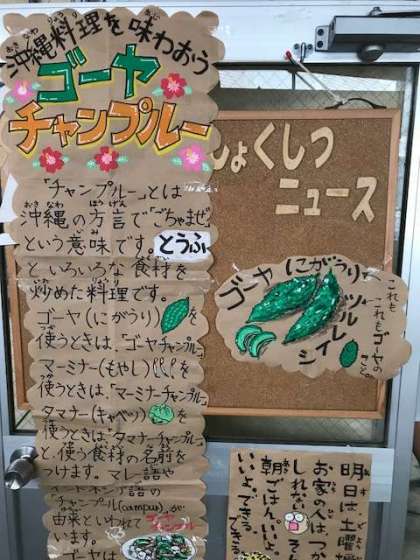 沖縄料理を味わおう
ゴーヤ
チャンプルー
「チャンプルー」とは
沖縄の方言で「ごちゃまぜ」
という意味です。とうふ
といろいろな食材を
炒めた料理です。
ゴーヤ(にがうり)を
使うときは、「ゴーヤチャンプルー」
マーミナー(もやし)を
使うときは、「マーミナーチャンプルー」
タマナー(キャベツ)を
使うときは、タマナーチャンプルー
と、使う食材の名前を
つけます。マレー語や
インドネシア語の
「チャンプル(campur)」が
由来といわれて
います。
ゴーヤは
しょくしつ
ニュース
ゴーヤ
にがうり
ツルレイシ
これも
これもゴーヤの
こと。
明日は土曜
お家の人は
しれない
朝ごはん。
いいよ。できる